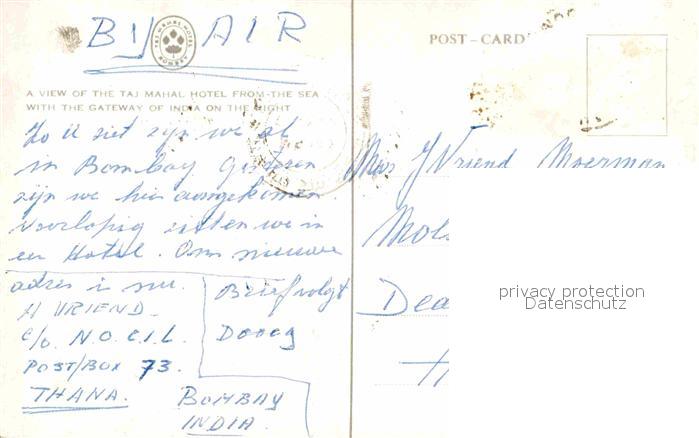 BY AIR
TAJ MAHAL HOTEL
BOMBAY
A VIEW OF THE TAJ MAHAL HOTEL FROM THE SEA
WITH THE GATEWAY OF INDIA ON THE RIGHT
Zo U ziet zijn we al
in Bombay Gisteren
zijn we hier aangekomen
voorlopig zitten we in
een Hotel. Ons nieuwe
adres is nu.
H VRIEND.
c/o. N.O.C.I.L.
POST/BOX 73.
THANA. BOMBAY
INDIA.
Brief volgt
POST-CARD
J Vriend Moerman
privacy protection
Datenschutz